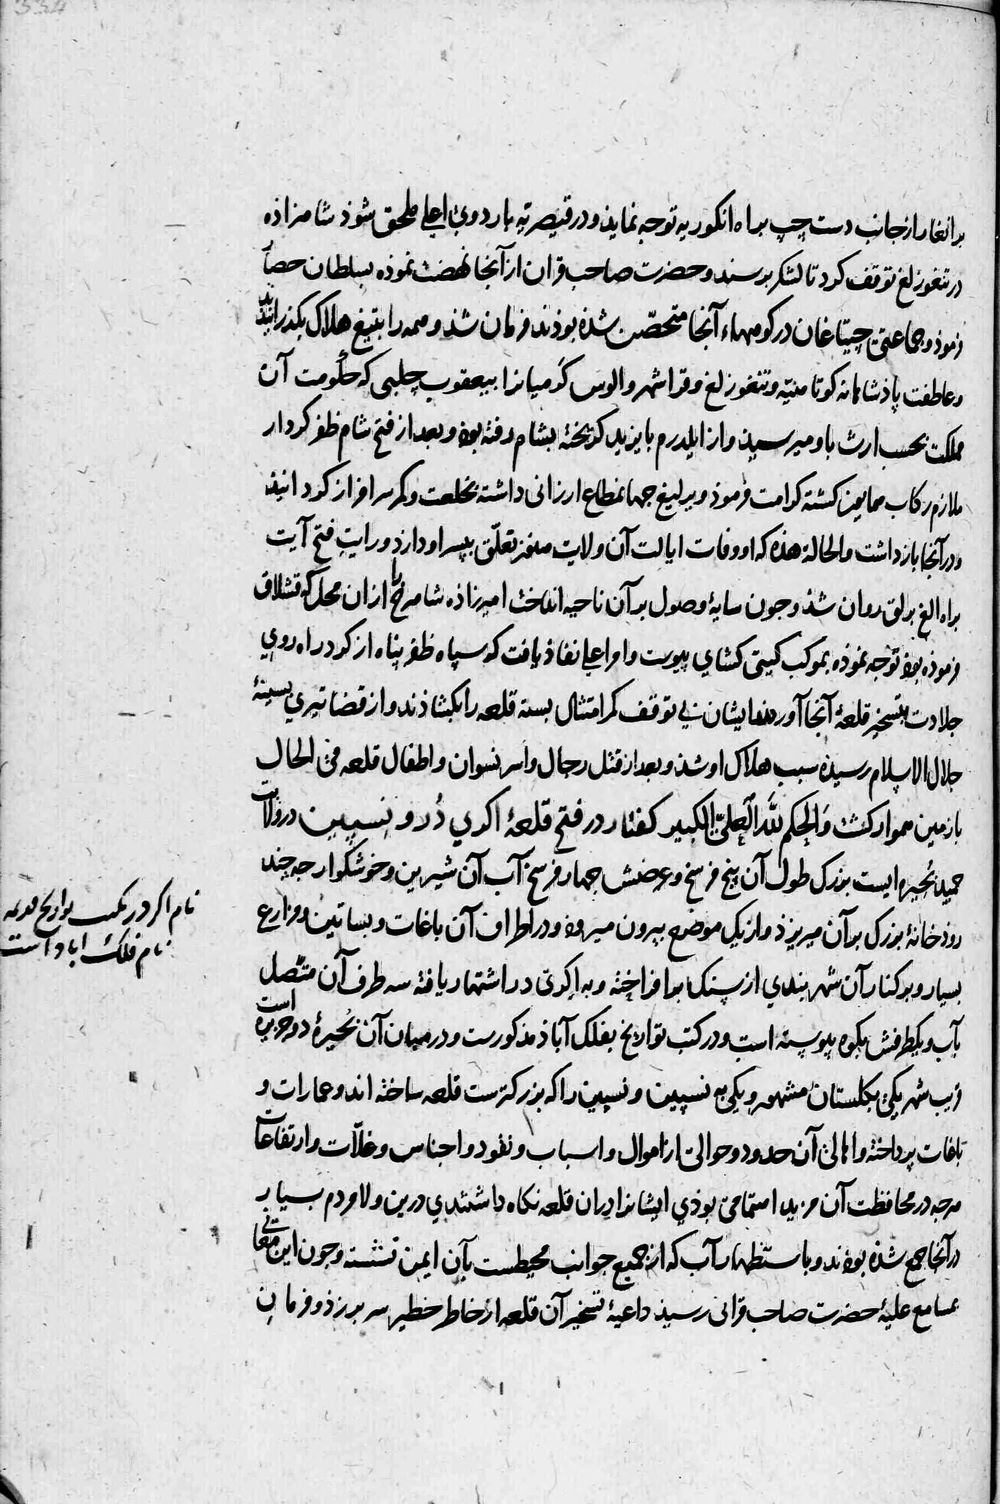 334
برانغار از جانب دست چپ براه انکوریه توجه نماید و در قیصریه باردوی اعلی ملحق شوذ شاهزاذه
در تنغوزلغ توقف کرد تا لشکر برسند و حضرت صاحب قران از آنجا نهضت نموذه بسلطان حصار
فرموذ و جماعتی جیتاغان در کوههاء آنجا متحصّن شذه بوذند فرمان شذ و همه را بتیغ هلاک بکذرانیذند
و عاطفت پاذشاهانه کوتاهیّه و تنغوزلغ و قراشهر و الوس کرمیانرا بیعقوب چلبی که حکومت آن
مملکت بحسب ارث باو میرسیذ و از ایلدرم بایزید کریخته بشام رفته بوذ و بعد از فتح شام ظفرکردار
ملازم رکاب همایون کشته کرامت فرموذ و یرلیغ جهانمطاع ارزانی داشته بخلعت و کمر سرافراز کردانیذ
و در آنجا بازداشت و الحالة هذه که او وفات ایالت آن ولایت هنوز تعلّق بپسر او دارذ و رایت فتح آیت
براه الغ برلق روان شذ و چون سایهٔ وصول بر آن ناحیه انداخت امیرزاذه شاهرخ را از ان محل که قشلاق
فرموذه بوذ توجه نموذه بموکب کیتی کشای پیوست و امر اعلی نفاذ یافت که سپاه ظفرپناه از کرد راه روی
جلادت بتسخیر قلعهٔ آنجا آورند ایشان بی توقف کمر امتثال بسته قلعه را بکشاذند و از قضا تیری بسینهٔ
جلال الاسلام رسیذه سبب هلاک او شذ و بعد از قتل رجال و اسر نسوان و اطفال قلعه فی الحال
بازمین هموار کشت وَالحکم لله العلیّ الکبیر کفتار در فتح قلعهٔ اکری دُر و نسپین در ولایت
حمید بُحیره ایست بزرک طول آن پنج فرسخ و عرضش چهار فرسخ آب آن شیرین و خوشکوار چه چند
روذخانهٔ بزرک بر آن میریزذ و از یک موضع بیرون میروذ و در اطراف آن باغات و بساتین و مزارع
بسیار و بر کنار آن شهربندی از سنک برافراخته و به اکری در اشتهار یافته سه طرف آن متّصل
بآب و یکطرفش بکوه پیوسته است و در کتب تواریخ بفلک آباذ مذکورست و در میان آن بُحیرهٔ دو جزیره است
قریب شهر یکی بکلستان مشهور و یکی به نسپین و نسپین را که بزرکترست قلعه ساخته اند و عمارات و
باغات پرداخته و اهالی آن حدود و حوالی از اموال و اسباب و نقود و اجناس و غلّات و ارتفاعات
هرچه در محافظت آن مزید اهتمامی بوذی ایشانرا در ان قلعه نکاه داشتندی درین ولا مردم بسیار
در آنجا جمع شذه بوذند و باستظهار آب که از جمیع جوانب محیطست بآن ایمن نشسته و چون این معانی
بمسامع علیهٔ حضرت صاحب قرانی رسیذ داعیهٔ تسخیر آن قلعه از خاطر خطیر سر برزذ و فرمان
نام اکردر بکتب تواریخ قدیمه
نام فلک اباد است